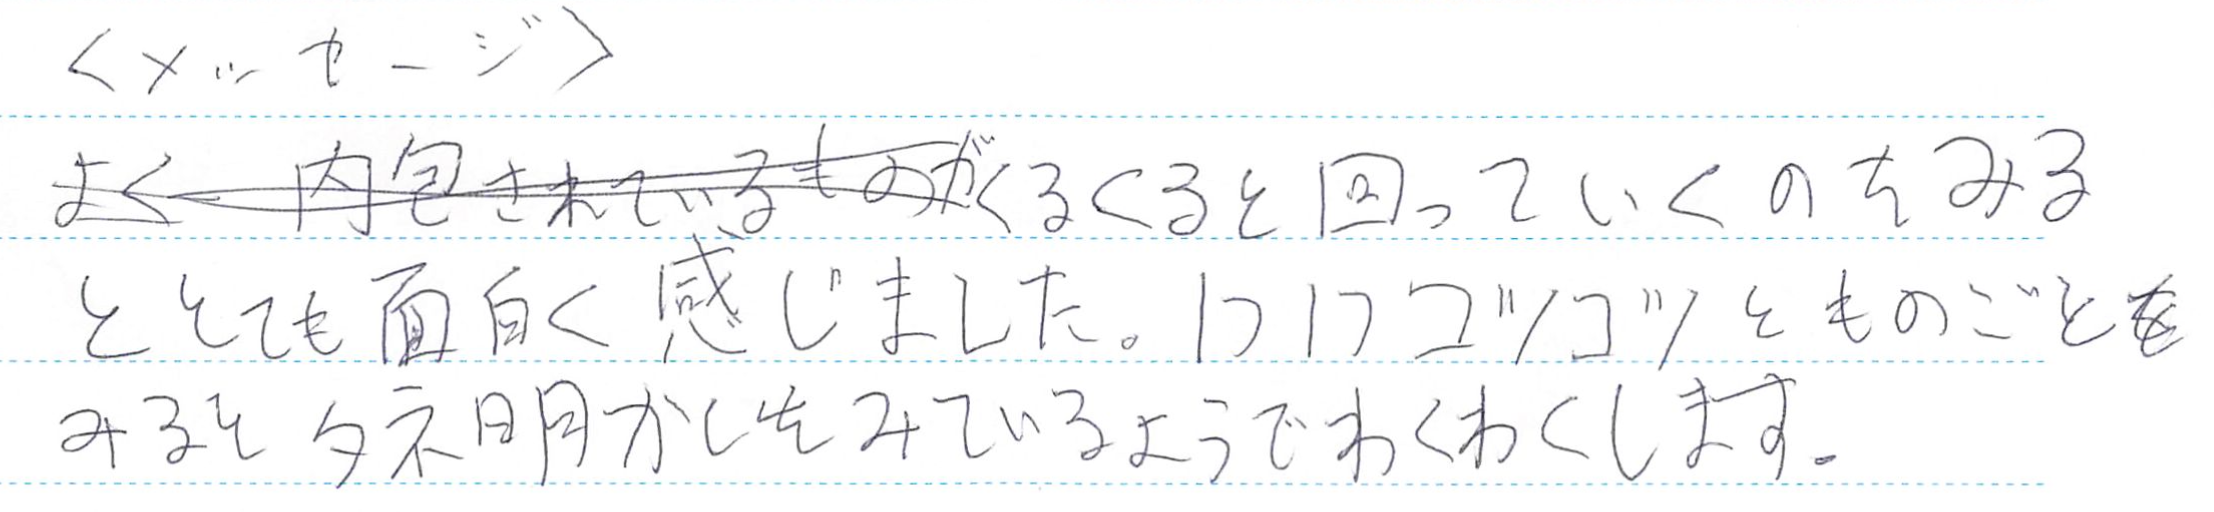 〈メッセージ〉
よく内包されているものがくるくると回っていくのをみる
ととても面白く感じました。1つ1つコツコツとものごとを
みるとタネ明かしをみているようでわくわくします。